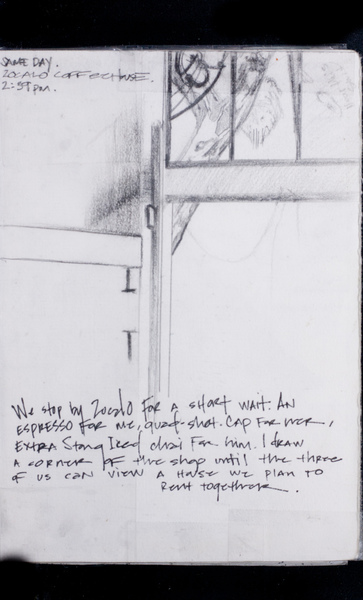 SAME DAY.
ZOCALO COFFEEHOUSE.
2:59 PM.
We stop by Zocalo for a short wait. An
espresso for me, quad-shot. Cap for her,
extra strong Iced chai for him. I draw
a corner of the shop until the three
of us can view a house we plan to
rent together.